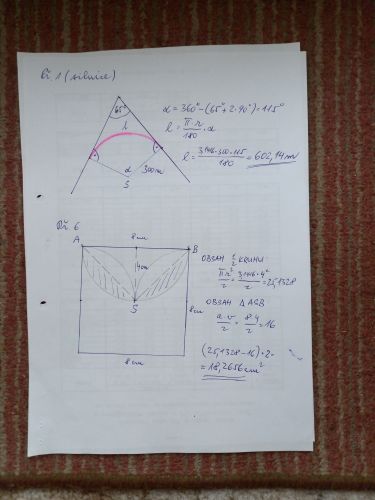 Př. 1 (silnice)
65°
l
α
300m
S
α = 360° - (65° + 2·90°) = 115°
l = π·r/180 · α
l = 3,1416·300·115/180 = 602,14 m
Př. 6
A
8cm
B
4cm
S
8cm
8cm
OBSAH 1/2 KRUHU
πr²/2 = 3,1416·4²/2 = 25,1328
OBSAH Δ ASB
a·v/2 = 8·4/2 = 16
(25,1328 - 16)·2 =
= 18,2656 cm²